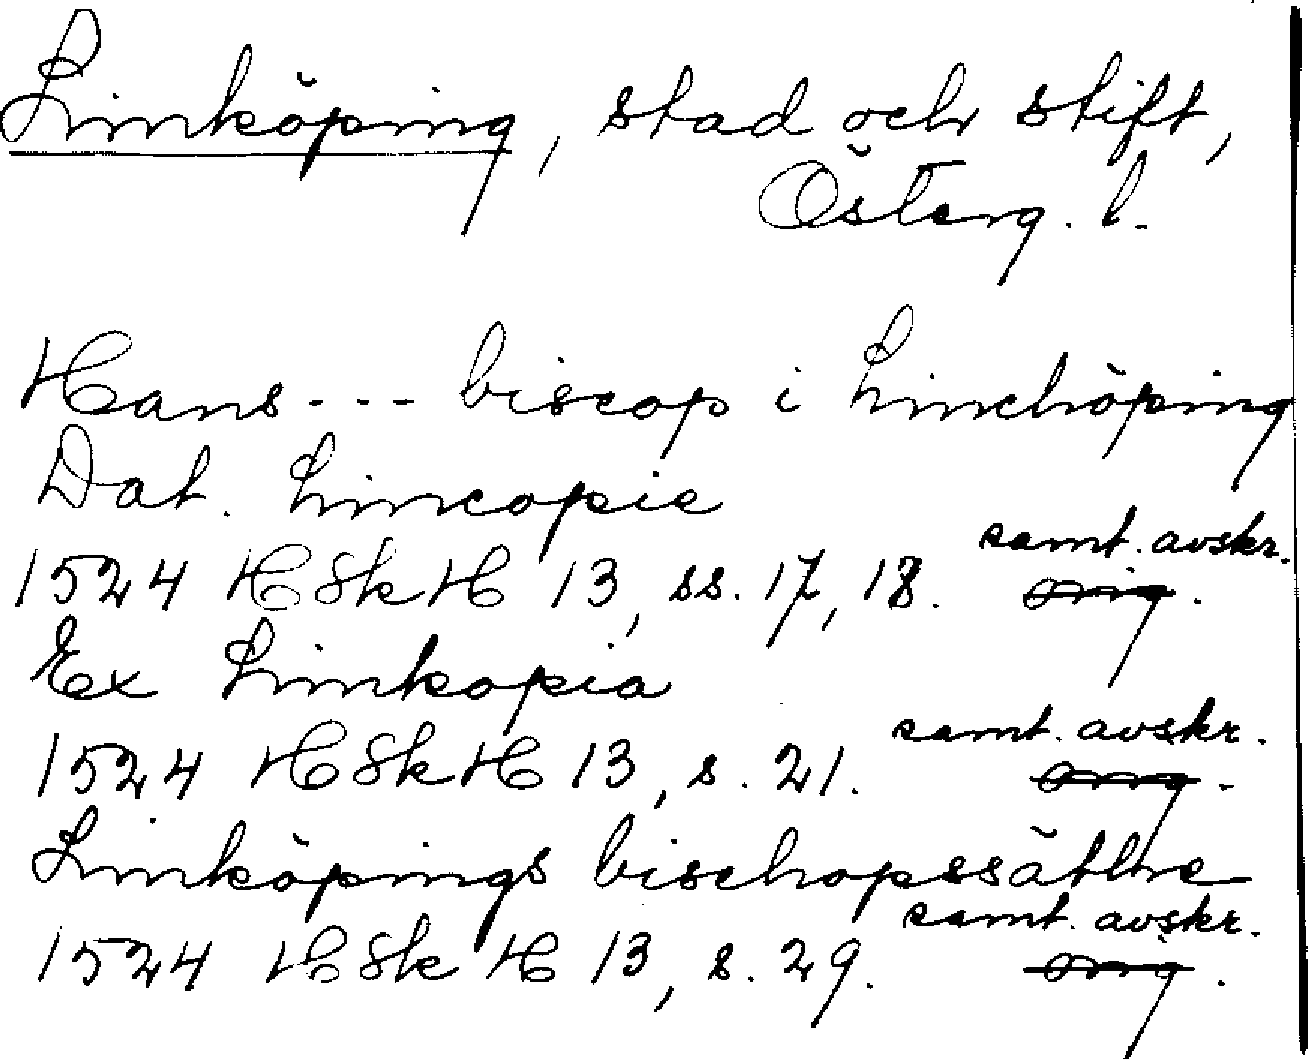 Linköping, stad och stift,
Österg. l.
Hans --- biscop i Linchöping
Dat. Lincopie
samt. avskr.
1524 HSkH 13, ss. 17, 18. orig.
Ex Linkopia
samt. avskr.
1524 HSkH 13, s. 21. orig.
Linköpings bischopssäthe
samt. avskr.
1524 HSkH 13, s. 29. orig.